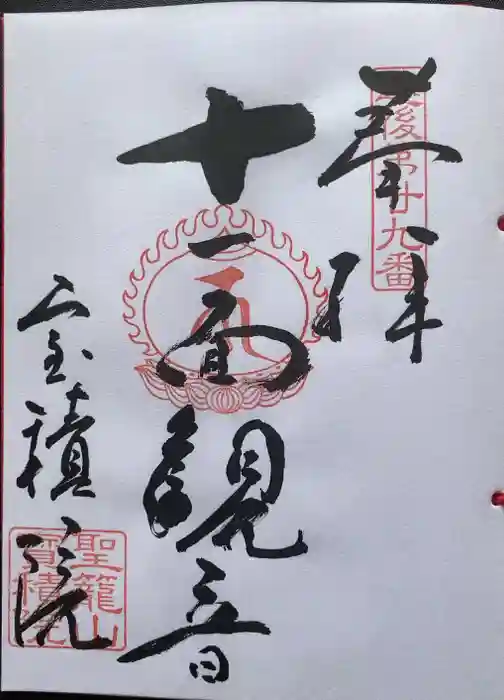 奉拝
後第廿九番
十一面観音
宝積院
聖籠山
寶積院